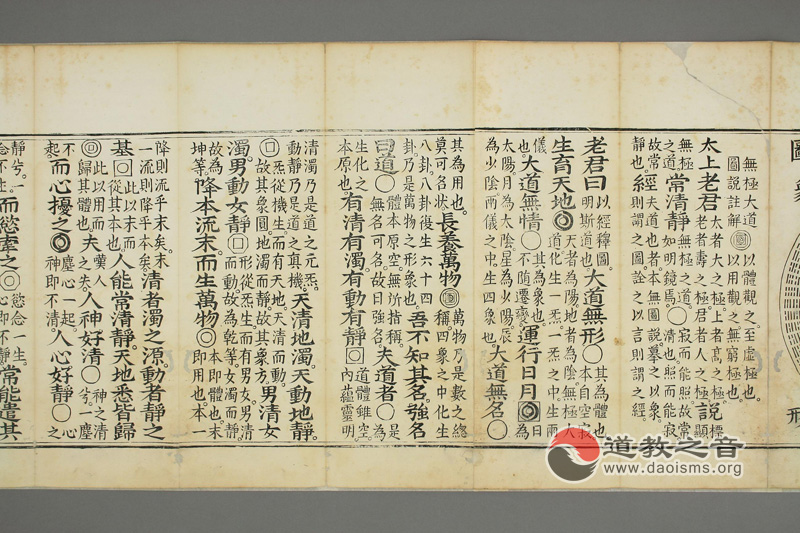 圖象
形
無極大道 以體觀之至虛極也。
圖說註解 以用觀之無窮極也。
太上老君 太者大之極上者髙之極 老者壽之極君者人之極 說 標顯
無極之道 常清靜 無極之道◯寂而能照故常 如明鏡焉◯清也照而能寂
故常靜也。 經 夫道也者本無圖說摹之以象 則謂之圖詮之以言則謂之經
老君曰 以經釋圖。明斯道曰。 大道無形◯ 其為體也 本自空寂
生育天地 天者為陽地者為陰無極人 道化生一炁一炁之中生兩
儀也 大道無情◯ 其為象也。不隨遷變。 運行日月 日為
太陽月為太陰星為少陽辰 為少陰兩儀之中生四象也 大道無名◯
其為用也。莫可名狀。 長養萬物 萬物乃是數之緫 稱四象之中化生
八卦八卦後生六十四 卦乃是萬物之形象也。 吾不知其名。強名
曰道◯ 體本原空無所指稱。 無名可名。故曰強名。 夫道者◯ 是
生化之本原也。 有清有濁。有動有靜 道體雖空 內蘊靈明
清濁乃是道之元炁。 動靜乃是道之真機。 天清地濁。天動地靜。
炁從機生而有天地。天清而動。 故其象圓地濁而靜故其象方。 男清女
濁。男動女靜 形從炁生而有男女。男清 而動故為乾等女濁而靜
故為坤等。 降本流末。而生萬物 本即體也。末 即用也。本一
降則流乎末矣。末 一流則降乎本矣。 清者濁之源。動者靜之
基 此以末而 從其本也。 人能常清靜天地悉皆歸
此以用而 歸其體也 嘆人之失。 夫人神好清◯ 神之清 兮一塵
不起。 而心擾之 塵心一起。 神即不清。 人心好靜◯ 心之
靜兮。一念不生。 而慾牽之 慾念一生。 心即不靜。 常能遣其
道教之音
www.daoisms.org